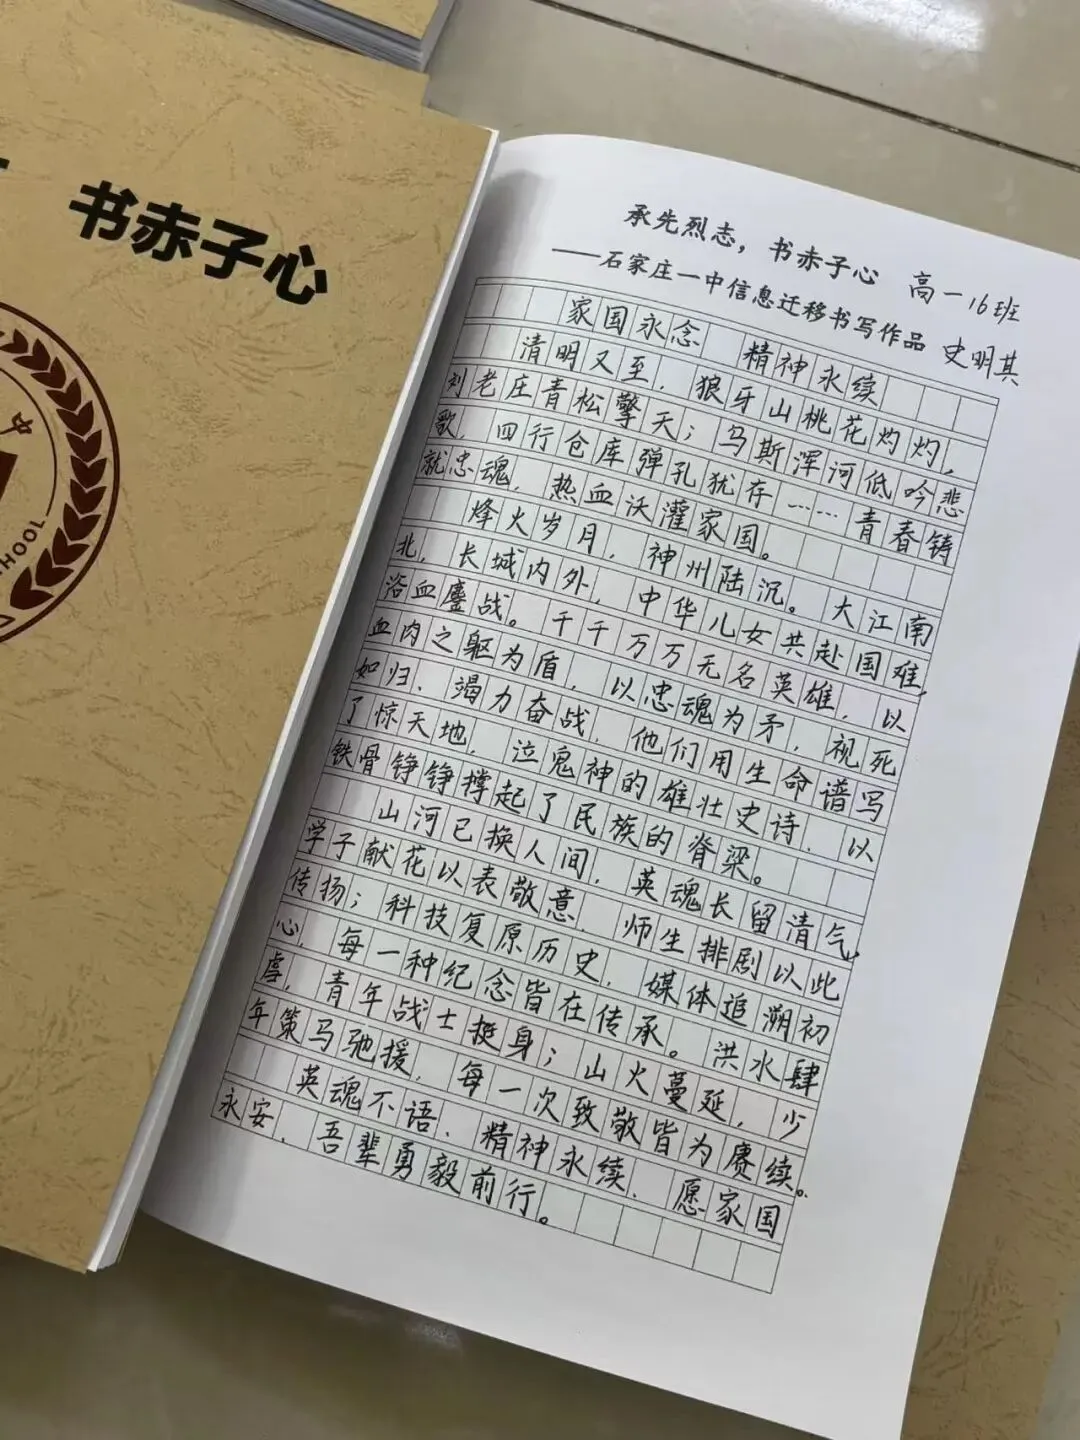 书赤子心
HOOL
承先烈志，书赤子心 高一16班
——石家庄一中信息迁移书写作品 史明其
家国永念 精神永续
清明又至，狼牙山桃花灼灼，
刘老庄青松擎天；乌斯浑河低吟悲
歌，四行仓库弹孔犹存……青春铸
就忠魂，热血沃灌家国。
烽火岁月，神州陆沉。大江南
北，长城内外，中华儿女共赴国难，
浴血鏖战。千千万万无名英雄，以
血肉之躯为盾，以忠魂为矛，视死
如归、竭力奋战，他们用生命谱写
了惊天地，泣鬼神的雄壮史诗，以
铁骨铮铮撑起了民族的脊梁。
山河已换人间，英魂长留清气，
学子献花以表敬意，师生排剧以此
传扬；科技复原历史，媒体追溯初
心，每一种纪念皆在传承。洪水肆
虐，青年战士挺身；山火蔓延，少
年策马驰援，每一次致敬皆为赓续。
英魂不语，精神永续，愿家国
永安，吾辈勇毅前行。